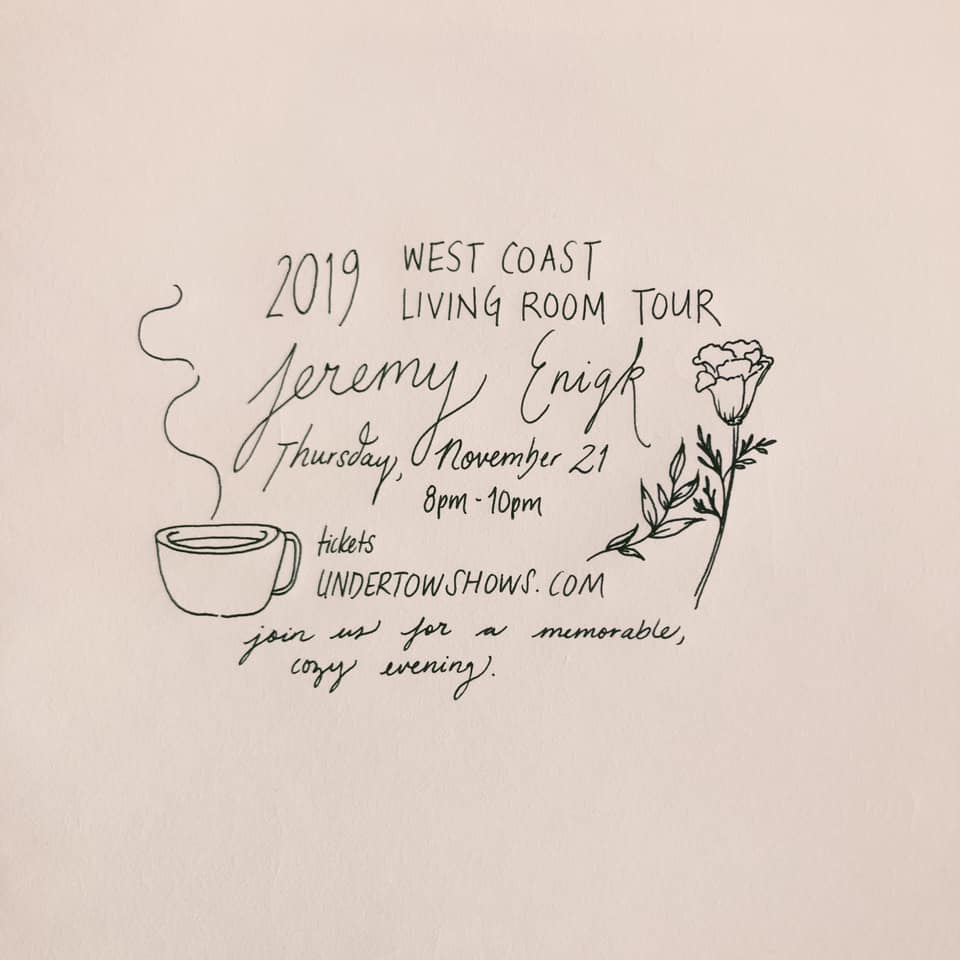 2019 WEST COAST
LIVING ROOM TOUR
Jeremy Enigk
Thursday, November 21
8pm - 10pm
tickets
UNDERTOWSHOWS.COM
join us for a memorable,
cozy evening.